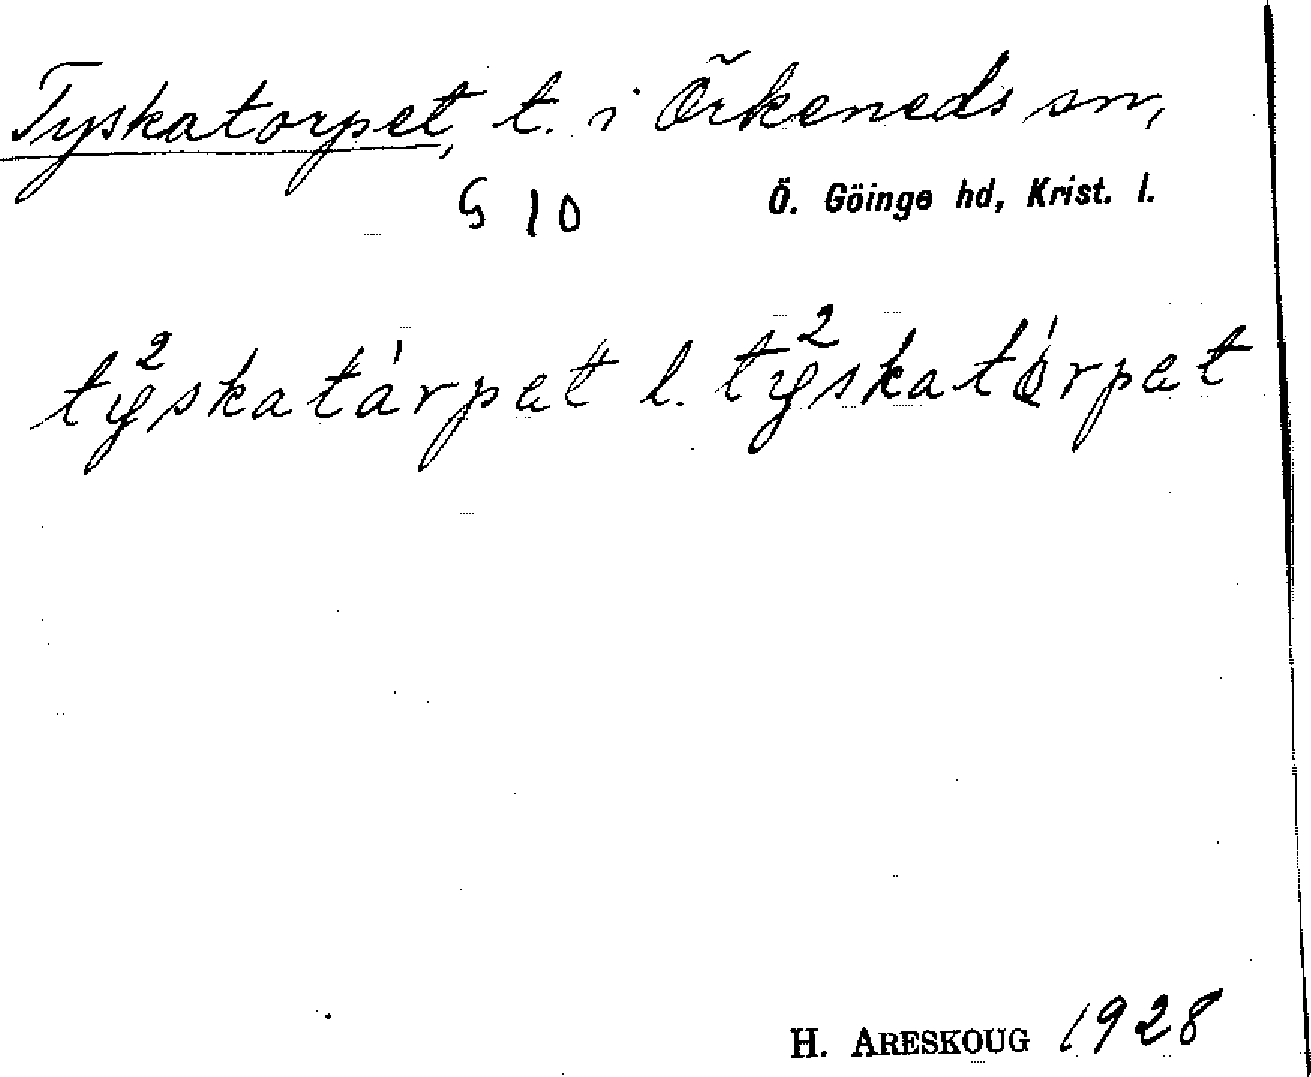 Tyskatorpet, t. i Örkeneds sn,
G 10 Ö. Göinge hd, Krist. l.
ty²skatá̍rpet l. ty²skató̍rpet
H. ARESKOUG 1928